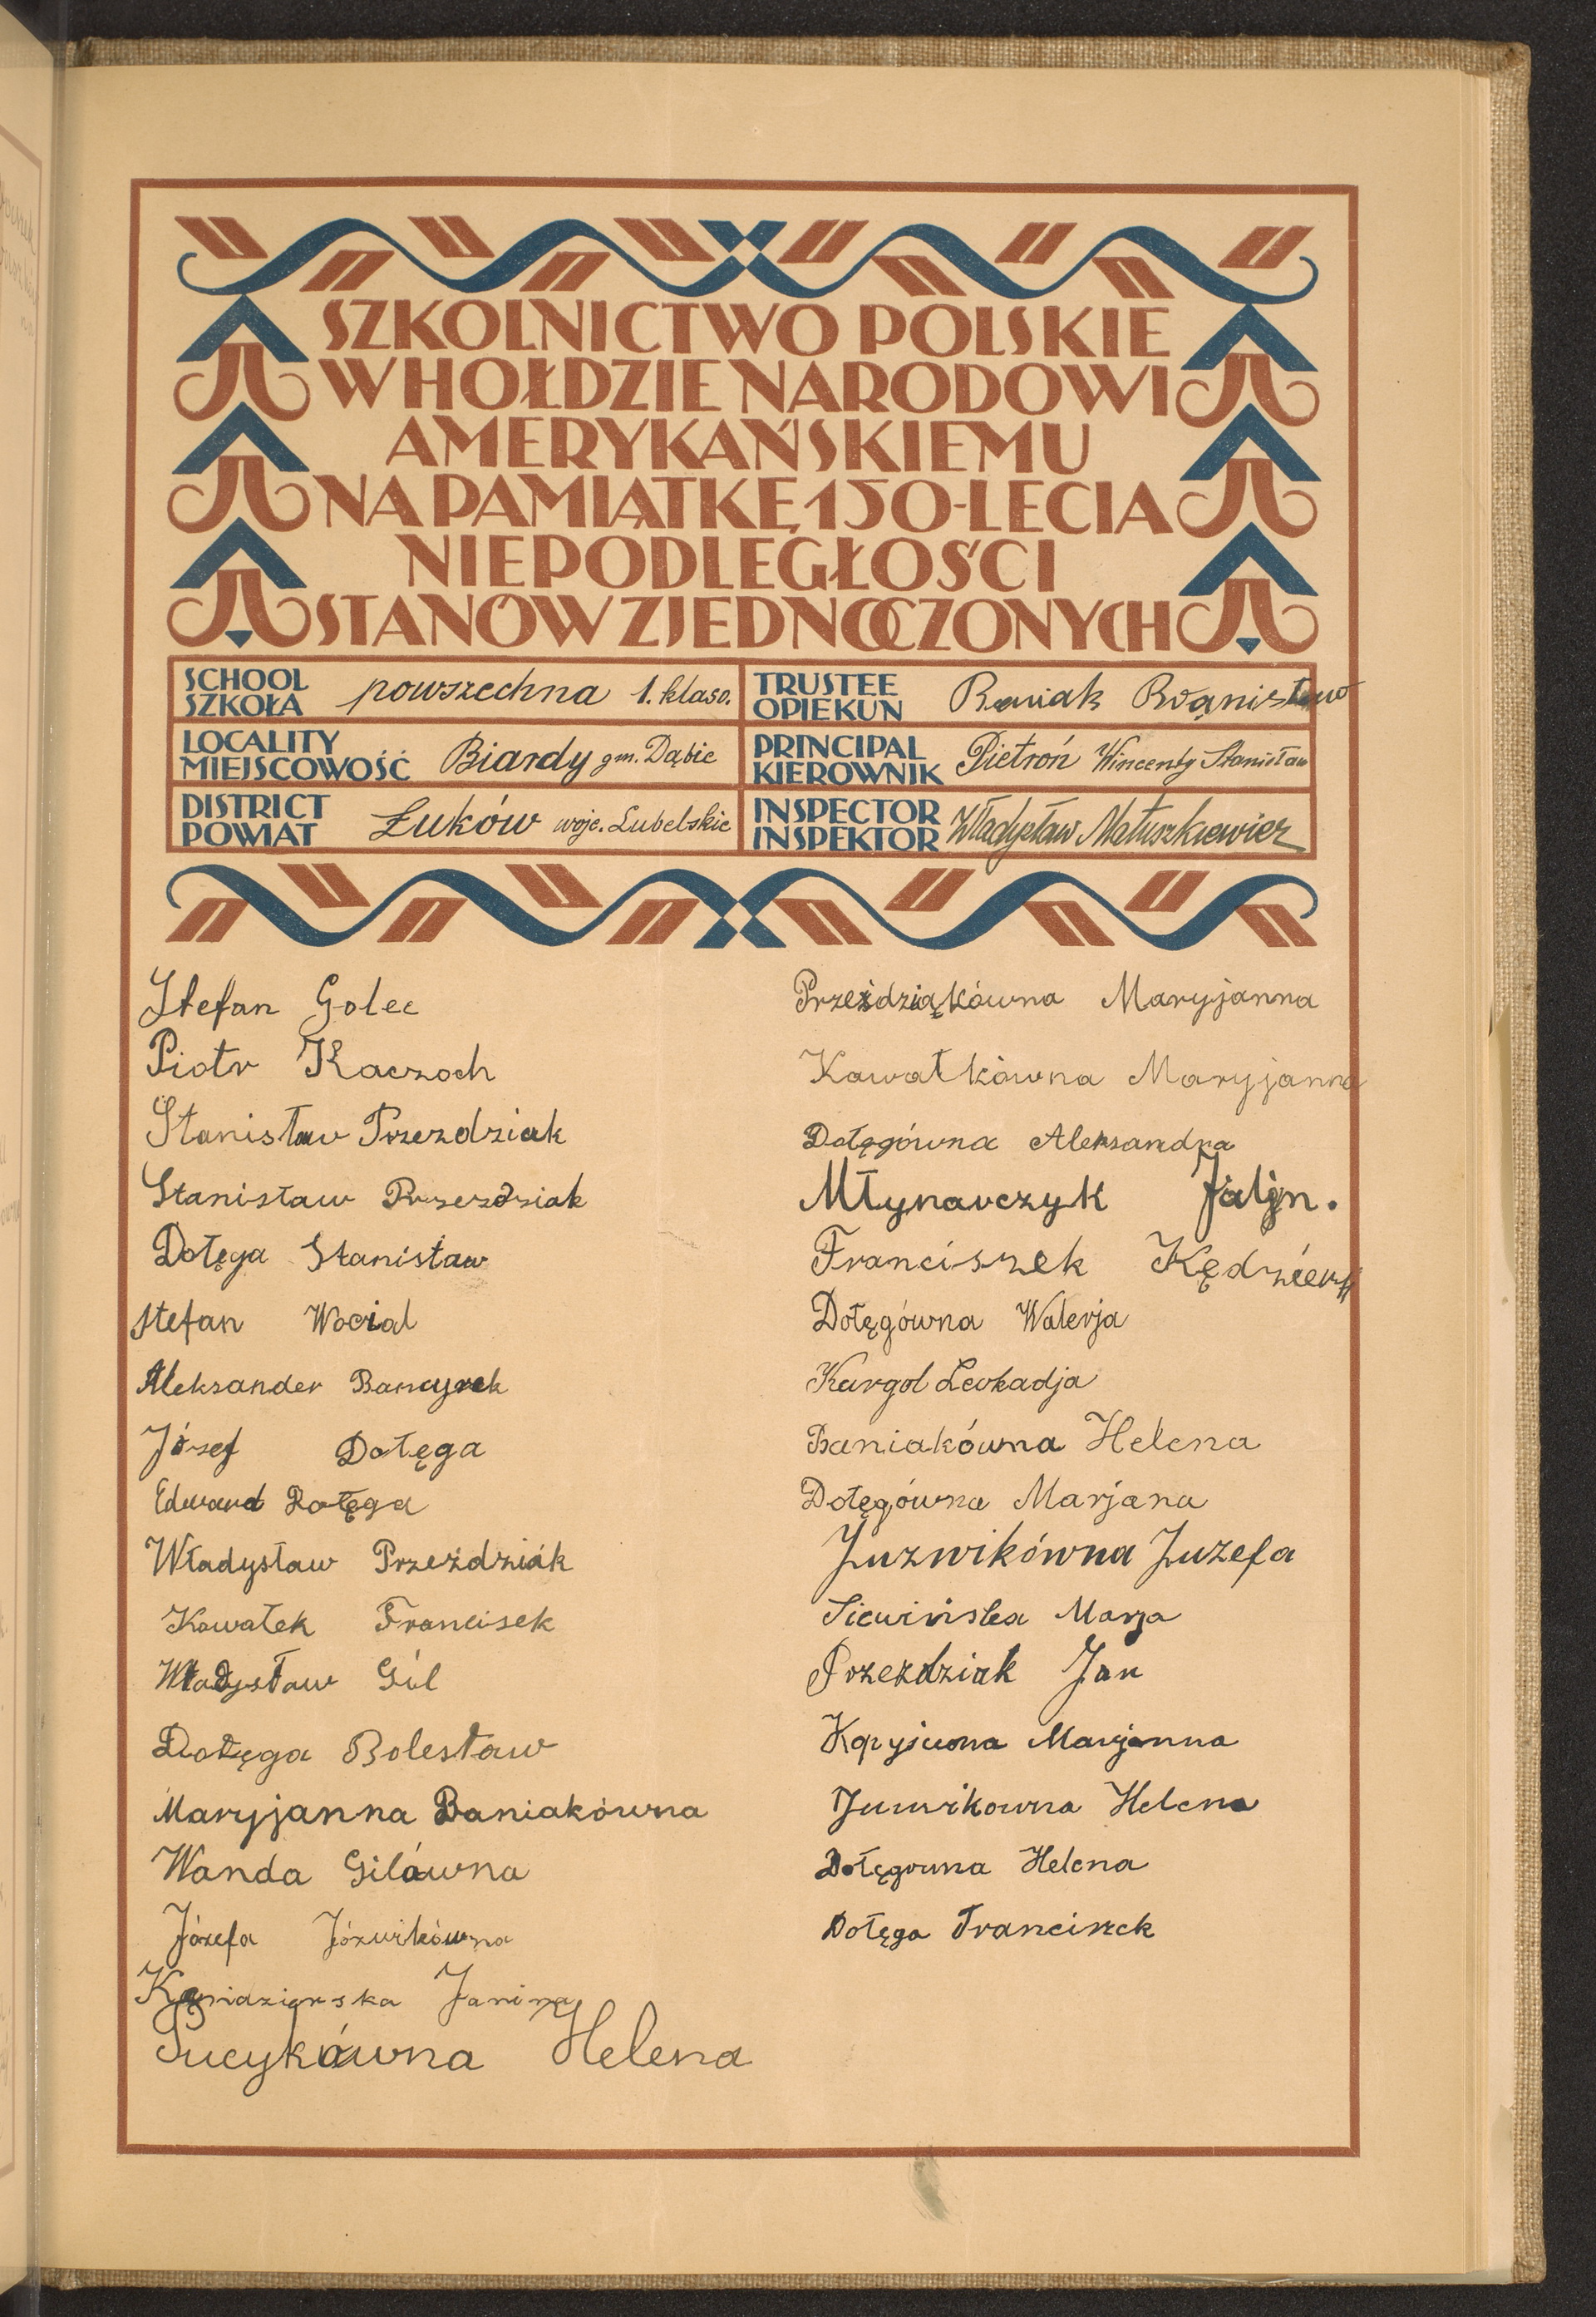 SZKOLNICTWO POLSKIE
W HOŁDZIE NARODOWI
AMERYKAŃSKIEMU
NA PAMIĄTKĘ 150-LECIA
NIEPODLEGŁOŚCI
STANÓW ZJEDNOCZONYCH
SCHOOL
SZKOŁA powszechna 1. klaso.
LOCALITY
MIEJSCOWOŚĆ Biardy gm. Dąbie
DISTRICT
POWIAT Łuków woje. Lubelskie
TRUSTEE
OPIEKUN Baniak
PRINCIPAL
KIEROWNIK Pietroń Wincenty Stanisław
INSPECTOR
INSPEKTOR Władysław Matuszkiewicz
Stefan Golec
Piotr Kaczoch
Stanisław Przezdziak
Stanisław Przezdziak
Dołęga Stanisław
Stefan Wocial
Aleksander Bancyrek
Józef Dołęga
Edward Dołęga
Władysław Przeździak
Kowałek Francisek
Władysław Gól
Dołęga Bolesław
Maryjanna Baniakówna
Wanda Gilówna
Józefa Józwikówna
Janina
Sucykówna Helena
Przeździąkówna Maryjanna
Kawałkówna Maryjanna
Dołęgówna Aleksandra
Młynarczyk
Franciszek
Dołęgówna Walerja
Kargol Leokadja
Baniakówna Helena
Dołęgówna Marjana
Juzwikówna Juzefa
Siewińska Marja
Przezdziak Jan
Marjanna
Helena
Dołęgowna Helena
Dołęga Franciszek